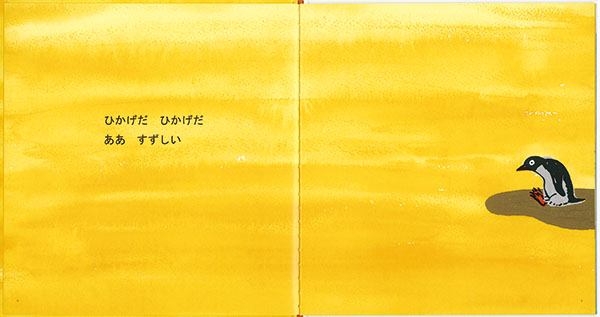 ひかげだ　ひかげだ
ああ　すずしい